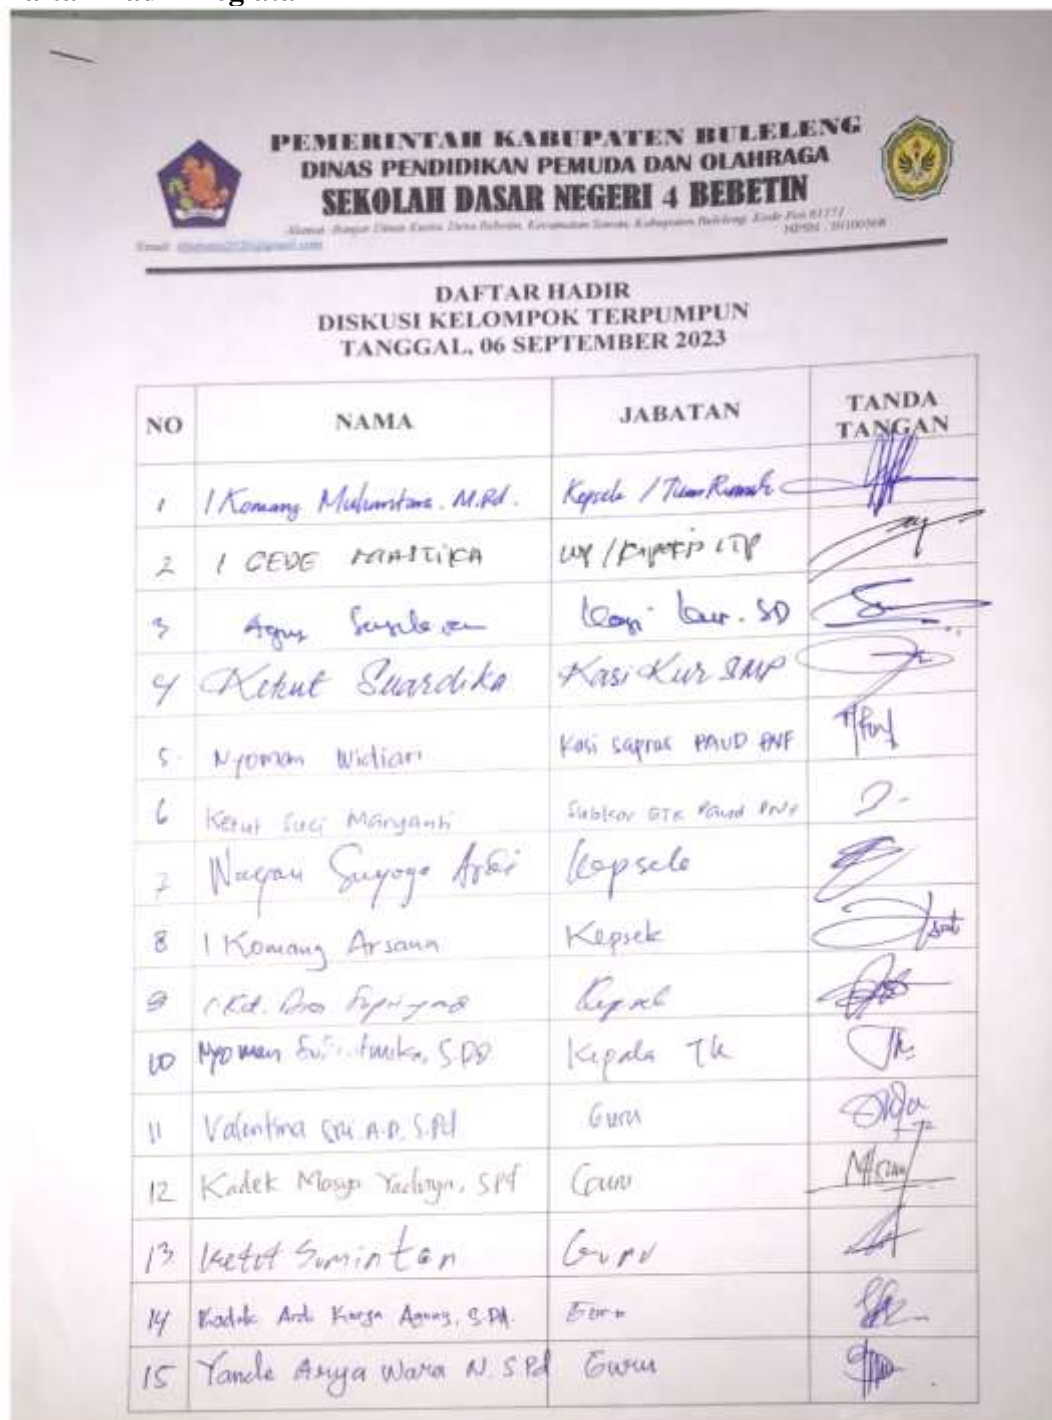 PEMERINTAH KABUPATEN BULELENG
DINAS PENDIDIKAN PEMUDA DAN OLAHRAGA
SEKOLAH DASAR NEGERI 4 BEBETIN
Alamat : Banjar Dinas Kusia, Desa Bebetin, Kecamatan Sawan, Kabupaten Buleleng, Kode Pos 81171
Email
DAFTAR HADIR
DISKUSI KELOMPOK TERPUMPUN
TANGGAL, 06 SEPTEMBER 2023
NO NAMA JABATAN TANDA TANGAN
1 I Komang M.Pd. Kepsek /
2 I GEDE
3 Agus Kasi Kur. SD
4 Ketut Suardika Kasi Kur SMP
5. Nyoman Widiari Kasi sapras PAUD PNF
6 Ketut Suci Maryanti Subkor GTK Paud PNF
7 Wayan Suyoga Kepsek
8 I Komang Arsana Kepsek
9 I Ket. Kepsek
10 Nyoman S.Pd Kepala TK
11 Valentina Sri. A.D. S.Pd Guru
12 Kadek Guru
13 Ketut Sumintan Guru
14 Kadek Ardi Agung, S.Pd. Guru
15 Yande Arya Wara N. S.Pd Guru